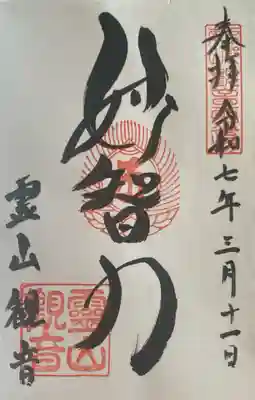 奉拝 令和七年三月十一日
妙智力
霊山観音
靈山
觀音